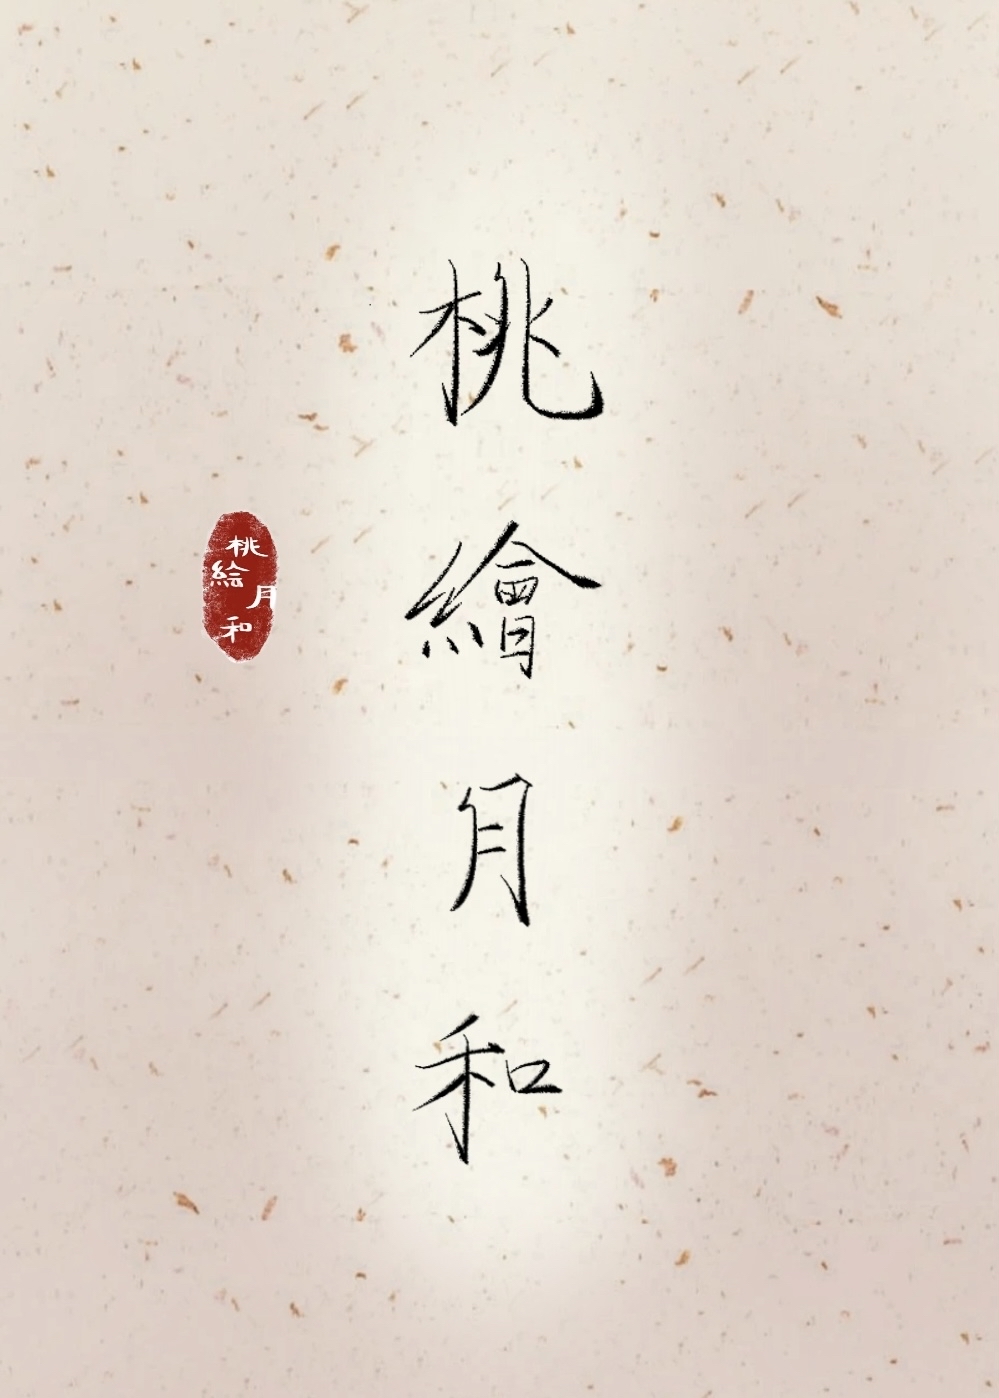 桃繪月和
桃絵月和